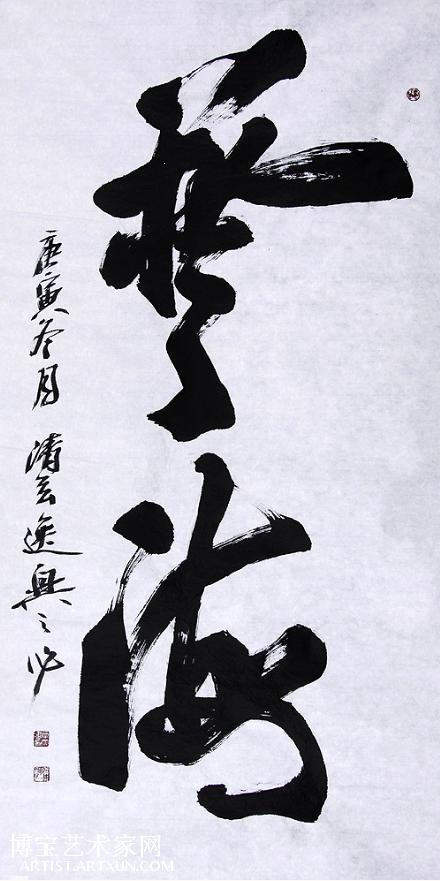 藝海
庚寅冬月 清玄逸興之作
博宝艺术家网
ARTIST.ARTXUN.COM